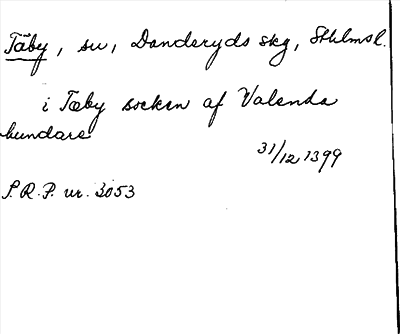 Täby, sn, Danderyds skg, Sthlmsl.
i Tæby sockn af Valenda
hundare
31/12 1399
S.R.P. nr. 3053